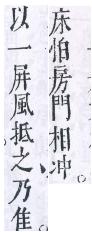 床怕房門相冲。
以一屏風抵之、乃隹。